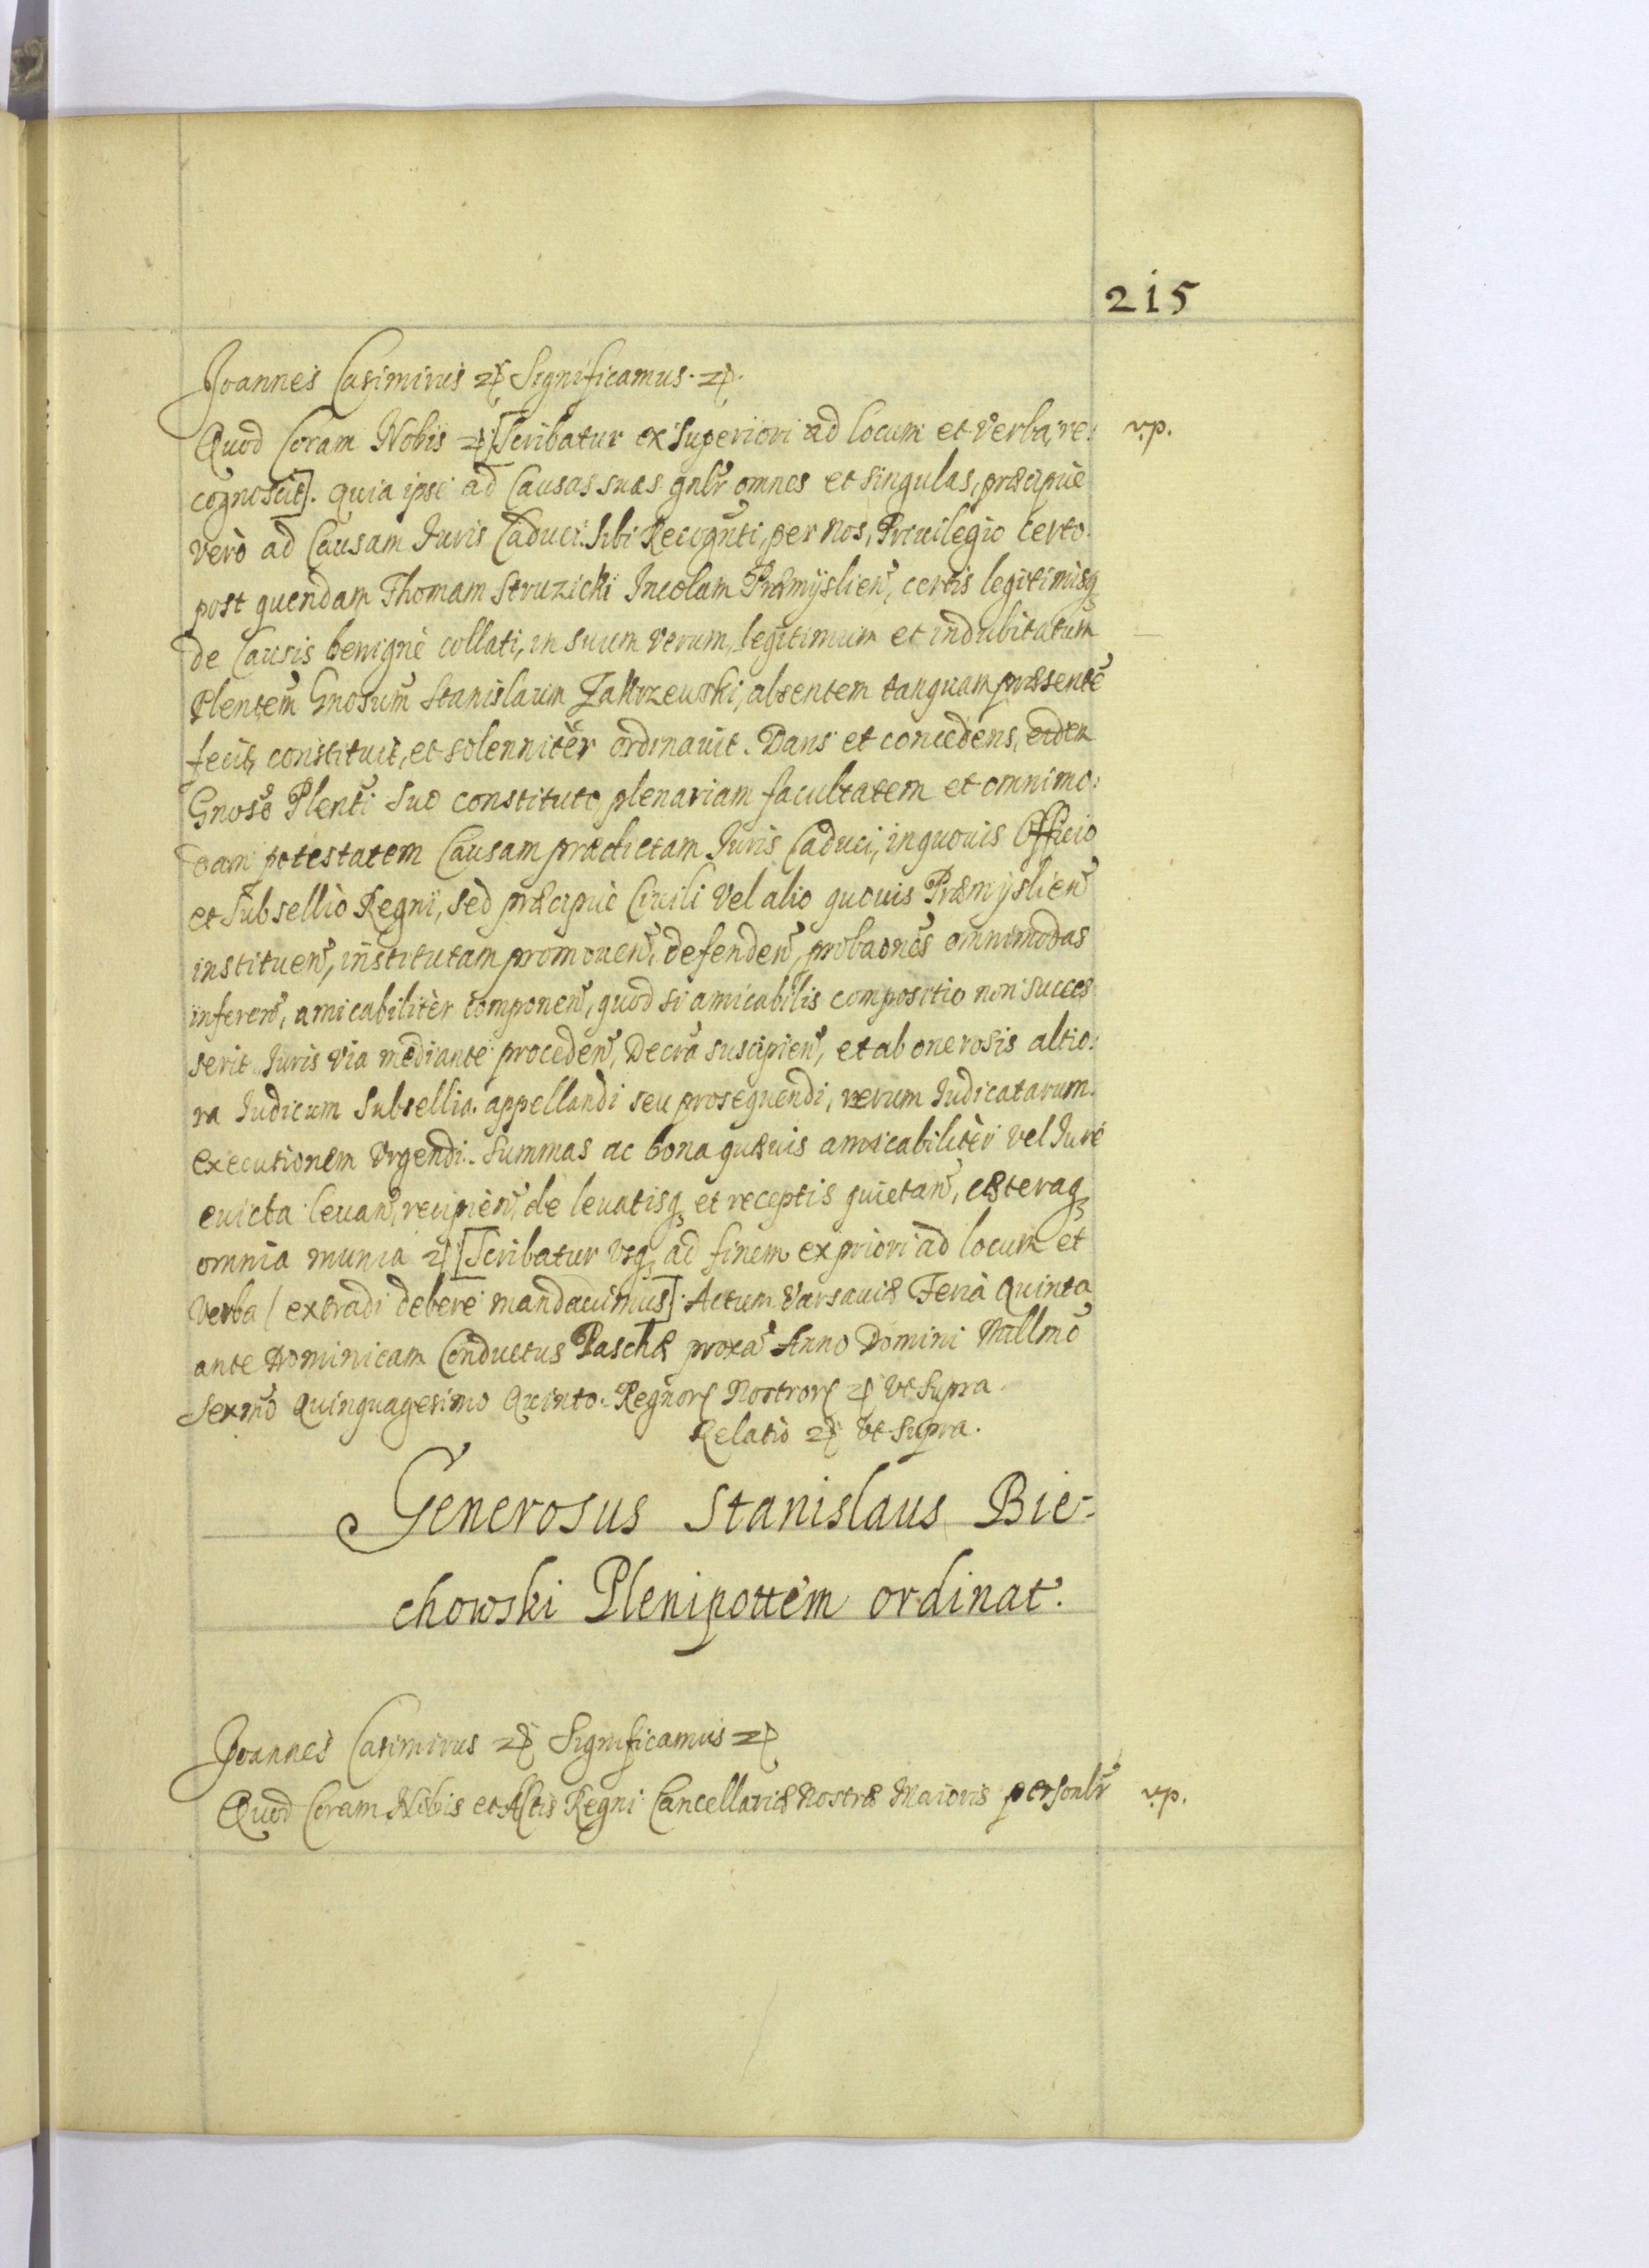 215
Joannes Casimirus etc Significamus. etc.
Quod Coram Nobis etc [Scribatur ex Superiori ad locum et verba, re: v.p.
cognoscit]. quia ipse ad Causas suas gnlr omnes et singulas, præcipuè
verò ad Causam Juris Caduci Sibi Recognti, per Nos, Privilegio certo
post quendam Thomam Struzicki Incolam Præmÿslien, certis legitimisq
de Causis benignè collati, in suum verum, legitimum et indubitatum
Plentem Gnosum Stanislaum Zakrzewski, absentem tanquam præsente
fecit, constituit, et solenniter ordinauit. Dans et concedens, eidem
Gnoso Plenti Suo constituto plenariam facultatem et omnimo:
dam potestatem Causam prædictam Juris Caduci, in quouis Officio
et Subsellio Regni, sed præcipuè Ciuili vel alio quouis Præmÿslien
instituen, institutam promouen, defenden, probaones omnimodas
inferen, amicabilitèr componen, quod si amicabilis compositio non succes
serit Juris via mediante proceden, Decra suscipien, et ab onerosis altio:
ra Judicum Subsellia appellandi seu prosequendi, rerum Judicatarum
executionem Vrgendi. Summas ac bona quæuis amicabilitèr vel Jure
euicta leuan, recipien, de leuatisq et receptis quietan, cæteraq
omnia munia etc [Scribatur vsq ad finem ex priori ad locum et
verba / extradi debere mandauimus]. Actum Varsauiæ Feria Quinta
ante Dominicam Conductus Paschæ proxa Anno Domini Millmo
Sexmo Quinquagesimo Quinto. Regnor Nostror etc vt Supra.
Relatio etc vt Supra.
Generosus Stanislaus Bie-
chowski Plenipottem ordinat.
Joannes Casimirus etc Significamus etc
Quod Coram Nobis et Actis Regni Cancellariæ Nostræ Maioris personlr v.p.